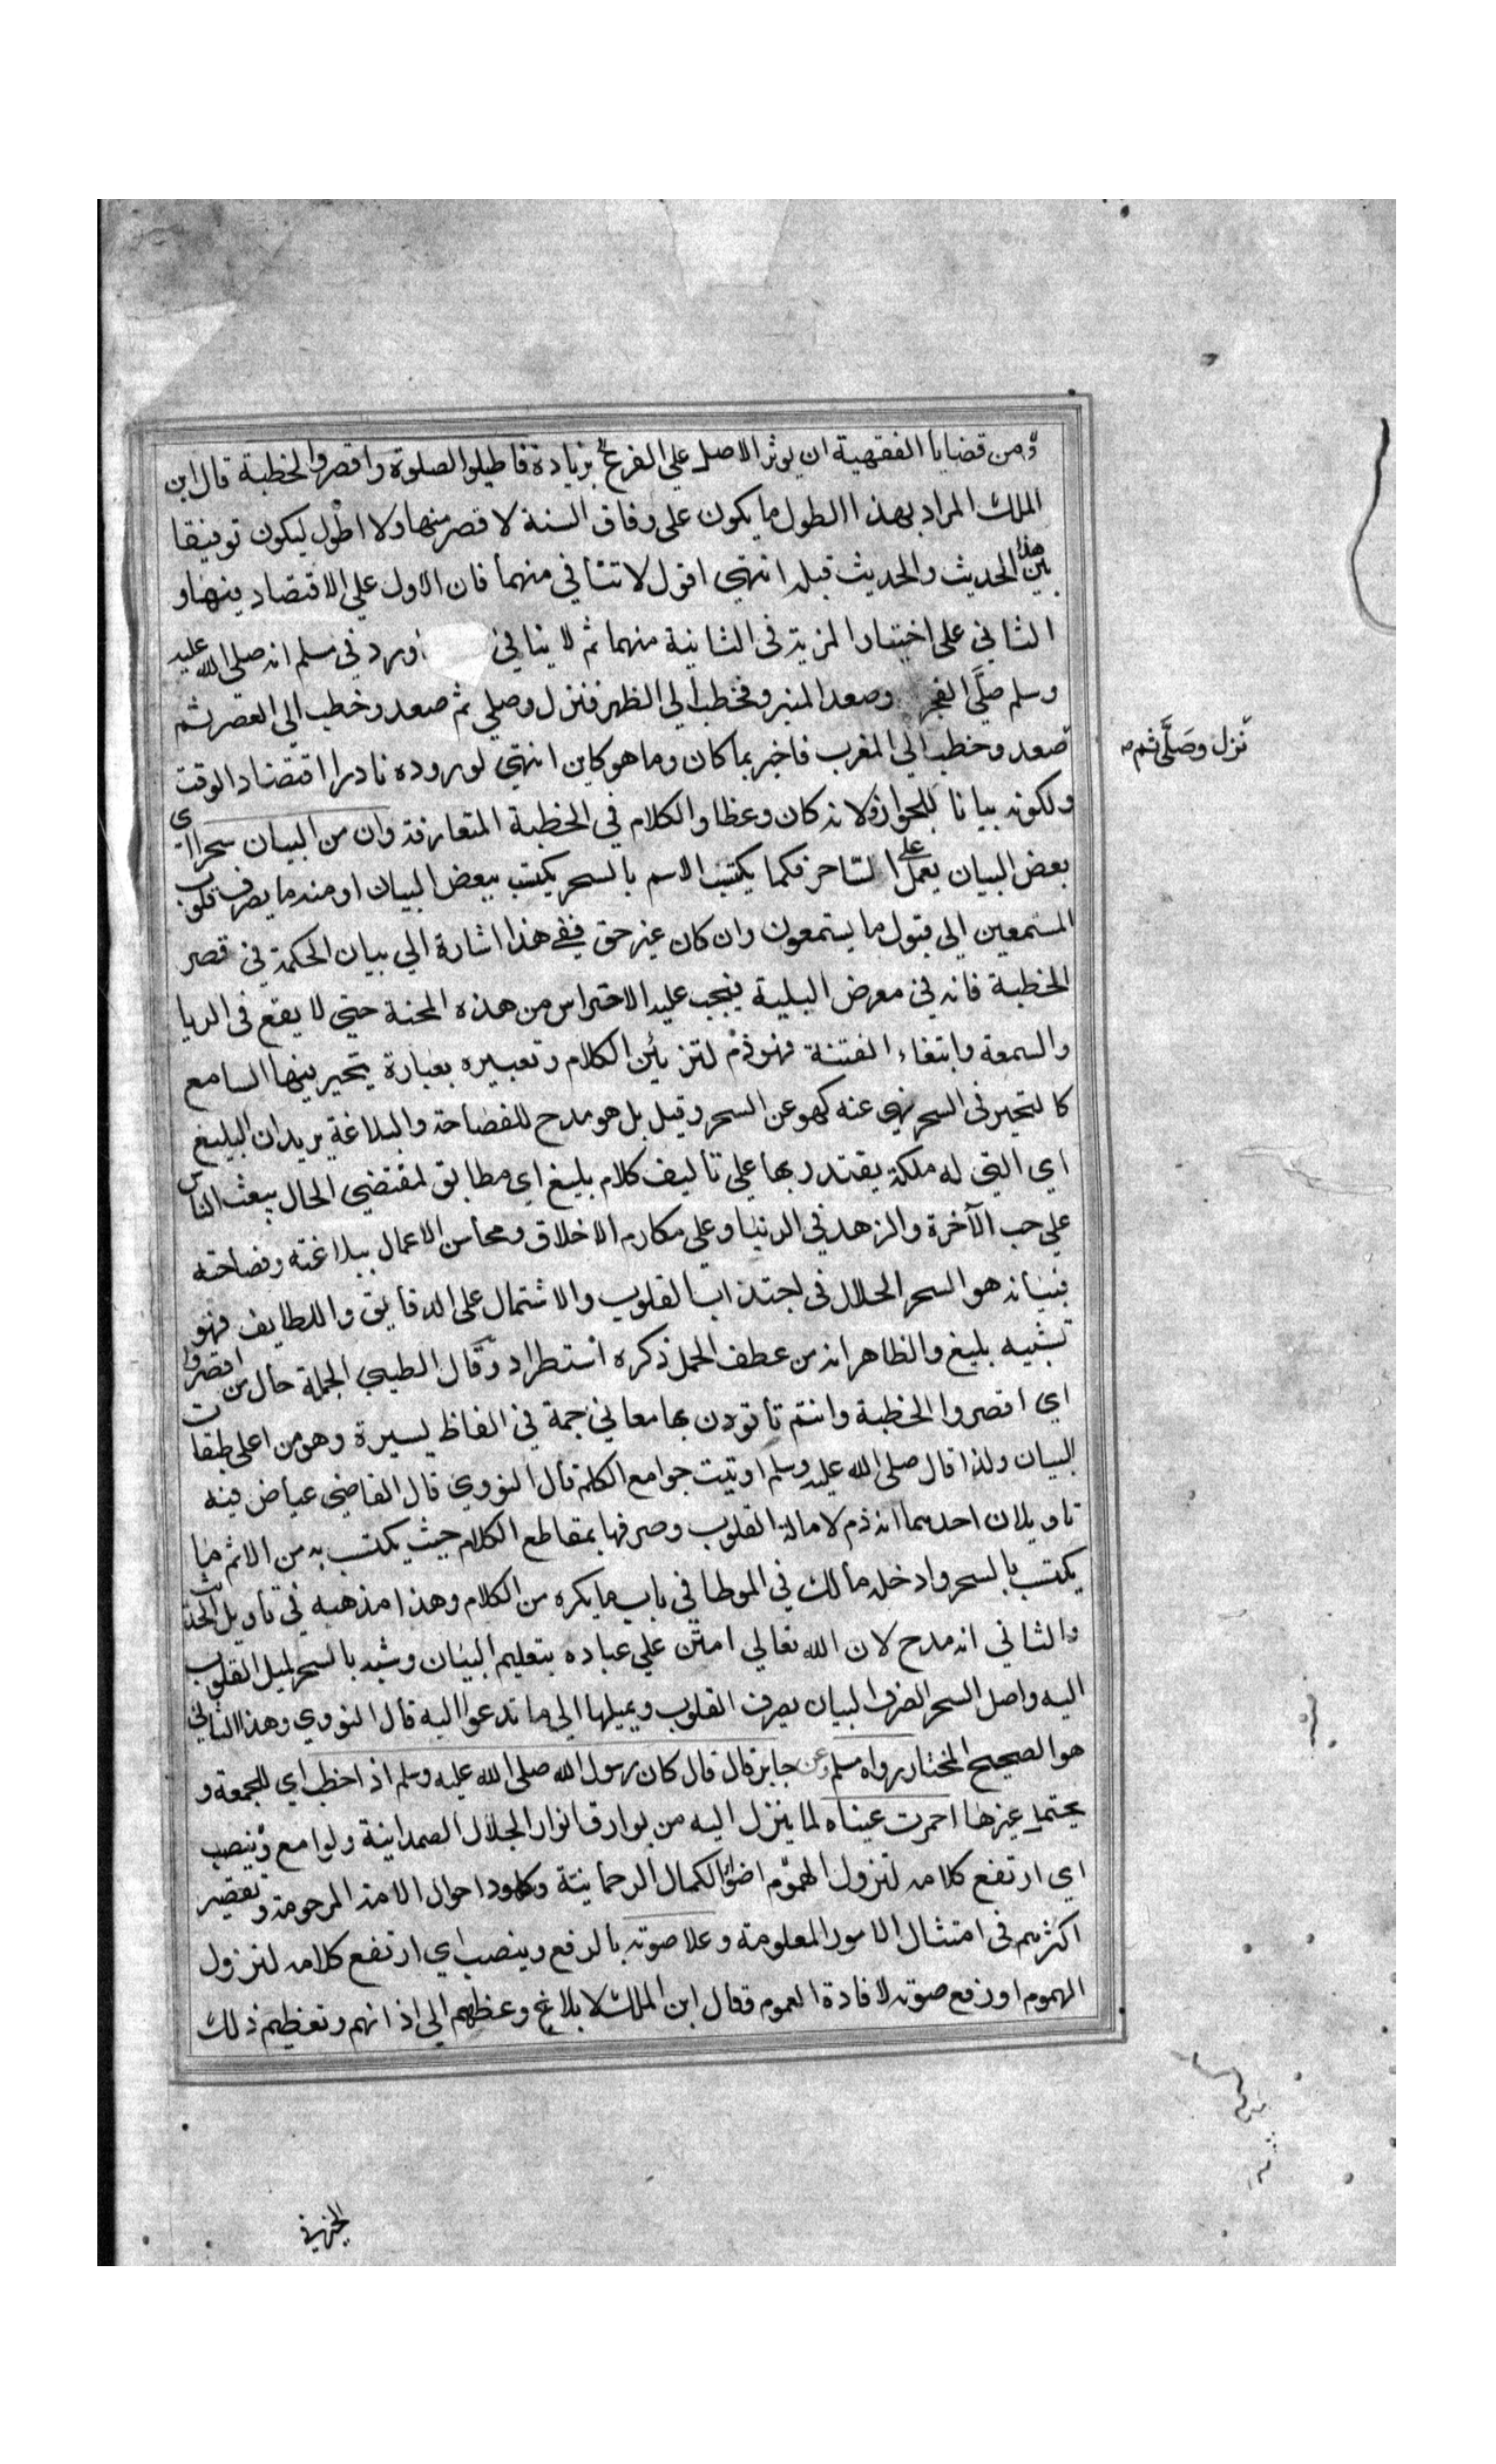 ومن قضايا الفقهية ان يوثر الاصل على الفرع بزيادة فاطيلوا الصلوة واقصروا الخطبة قال ابن
الملك المراد بهذا الطول ما يكون على وفاق السنة لا قصر منها ولا اطول ليكون توفيقا
بين هذا الحديث والحديث قبله انتهى اقول لا تنافي منهما فان الاول على الاقتصاد فيهما و
الثاني على اختيار المزية في الثانية منهما ثم لا ينافي ورد في مسلم انه صلى الله عليه
وسلم صلَّى الفجر وصعد المنبر وخطب الى الظهر فنزل وصلى ثم صعد وخطب الى العصر ثم
نزل وصلَّى ثم
صعد وخطب الى المغرب فاخبر بما كان وما هو كاين انتهى لوروده نادرا اقتضاه الوقت
ولكونه بيانا للجواز ولانه كان وعظا والكلام في الخطبة المتعارفة وان من البيان سحرا اى
بعض البيان يعمل على الساحر فكما يكتب الاسم بالسحر يكتب ببعض البيان او منه ما يصرف قلوب
المستمعين الى قبول ما يستمعون وان كان غير حق ففي هذا اشارة الى بيان الحكمة في قصر
الخطبة فانه في معرض البلية فيجب عليه الاحتراس من هذه المحنة حتى لا يقع في الريا
والسمعة وابتغاء الفتنة فهو ذم لتزيين الكلام وتعبيره بعبارة يتحير فيها السامع
كالتحير في السحر نهي عنه كهو عن السحر وقيل بل هو مدح للفصاحة والبلاغة يريد ان البليغ
اي التي له ملكة يقتدر بها على تأليف كلام بليغ اي مطابق لمقتضي الحال يبعث الناس
على حب الآخرة والزهد في الدنيا وعلى مكارم الاخلاق ومحاسن الاعمال ببلاغته وفصاحته
فبيانه هو السحر الحلال في اجتذاب القلوب والاشتمال على الدقايق واللطايف فهو
تشبيه بليغ والظاهر انه من عطف الجمل ذكره استطراد وقال الطيبي الجملة حال من اقصروا
اي اقصروا الخطبة وانتم تأتودن بها معاني جمة في الفاظ يسيرة وهو من اعلى طبقات
البيان ولذا قال صلى الله عليه وسلم اوتيت جوامع الكلم قال النووي قال القاضي عياض فيه
تاويلان احدهما انه ذم لامالة القلوب وصرفها بمقاطع الكلام حيث يكتب به من الاثم ما
يكتب بالسحر وادخله مالك في الموطا في باب ما يكره من الكلام وهذا مذهبه في تاويل الحديث
والثاني انه مدح لان الله تعالى امتن على عباده بتعليم البيان وشبه بالسحر لميل القلوب
اليه واصل السحر الصرف البيان يصرف القلوب ويميلها الى ما تدعوا اليه قال النووي وهذا الثاني
هو الصحيح المختار رواه مسلم وعن جابر قال قال كان رسول الله صلى الله عليه وسلم اذا خطب اي للجمعة و
يحتمل غيرها احمرت عيناه لما ينزل اليه من بوارق انوار الجلال الصمدانية ولوامع وينصب
اي ارتفع كلامه لنزول الهموم اضواء الكمال الرحمانية وشهود احوال الامة المرحومة وتقصير
اكثرهم في امتثال الامور المعلومة وعلا صوته بالرفع وينصب اي ارتفع كلامه لنزول
الهموم او رفع صوته لافادة العموم فقال ابن الملك لابلاغ وعظهم الى اذانهم وتعظيم ذلك